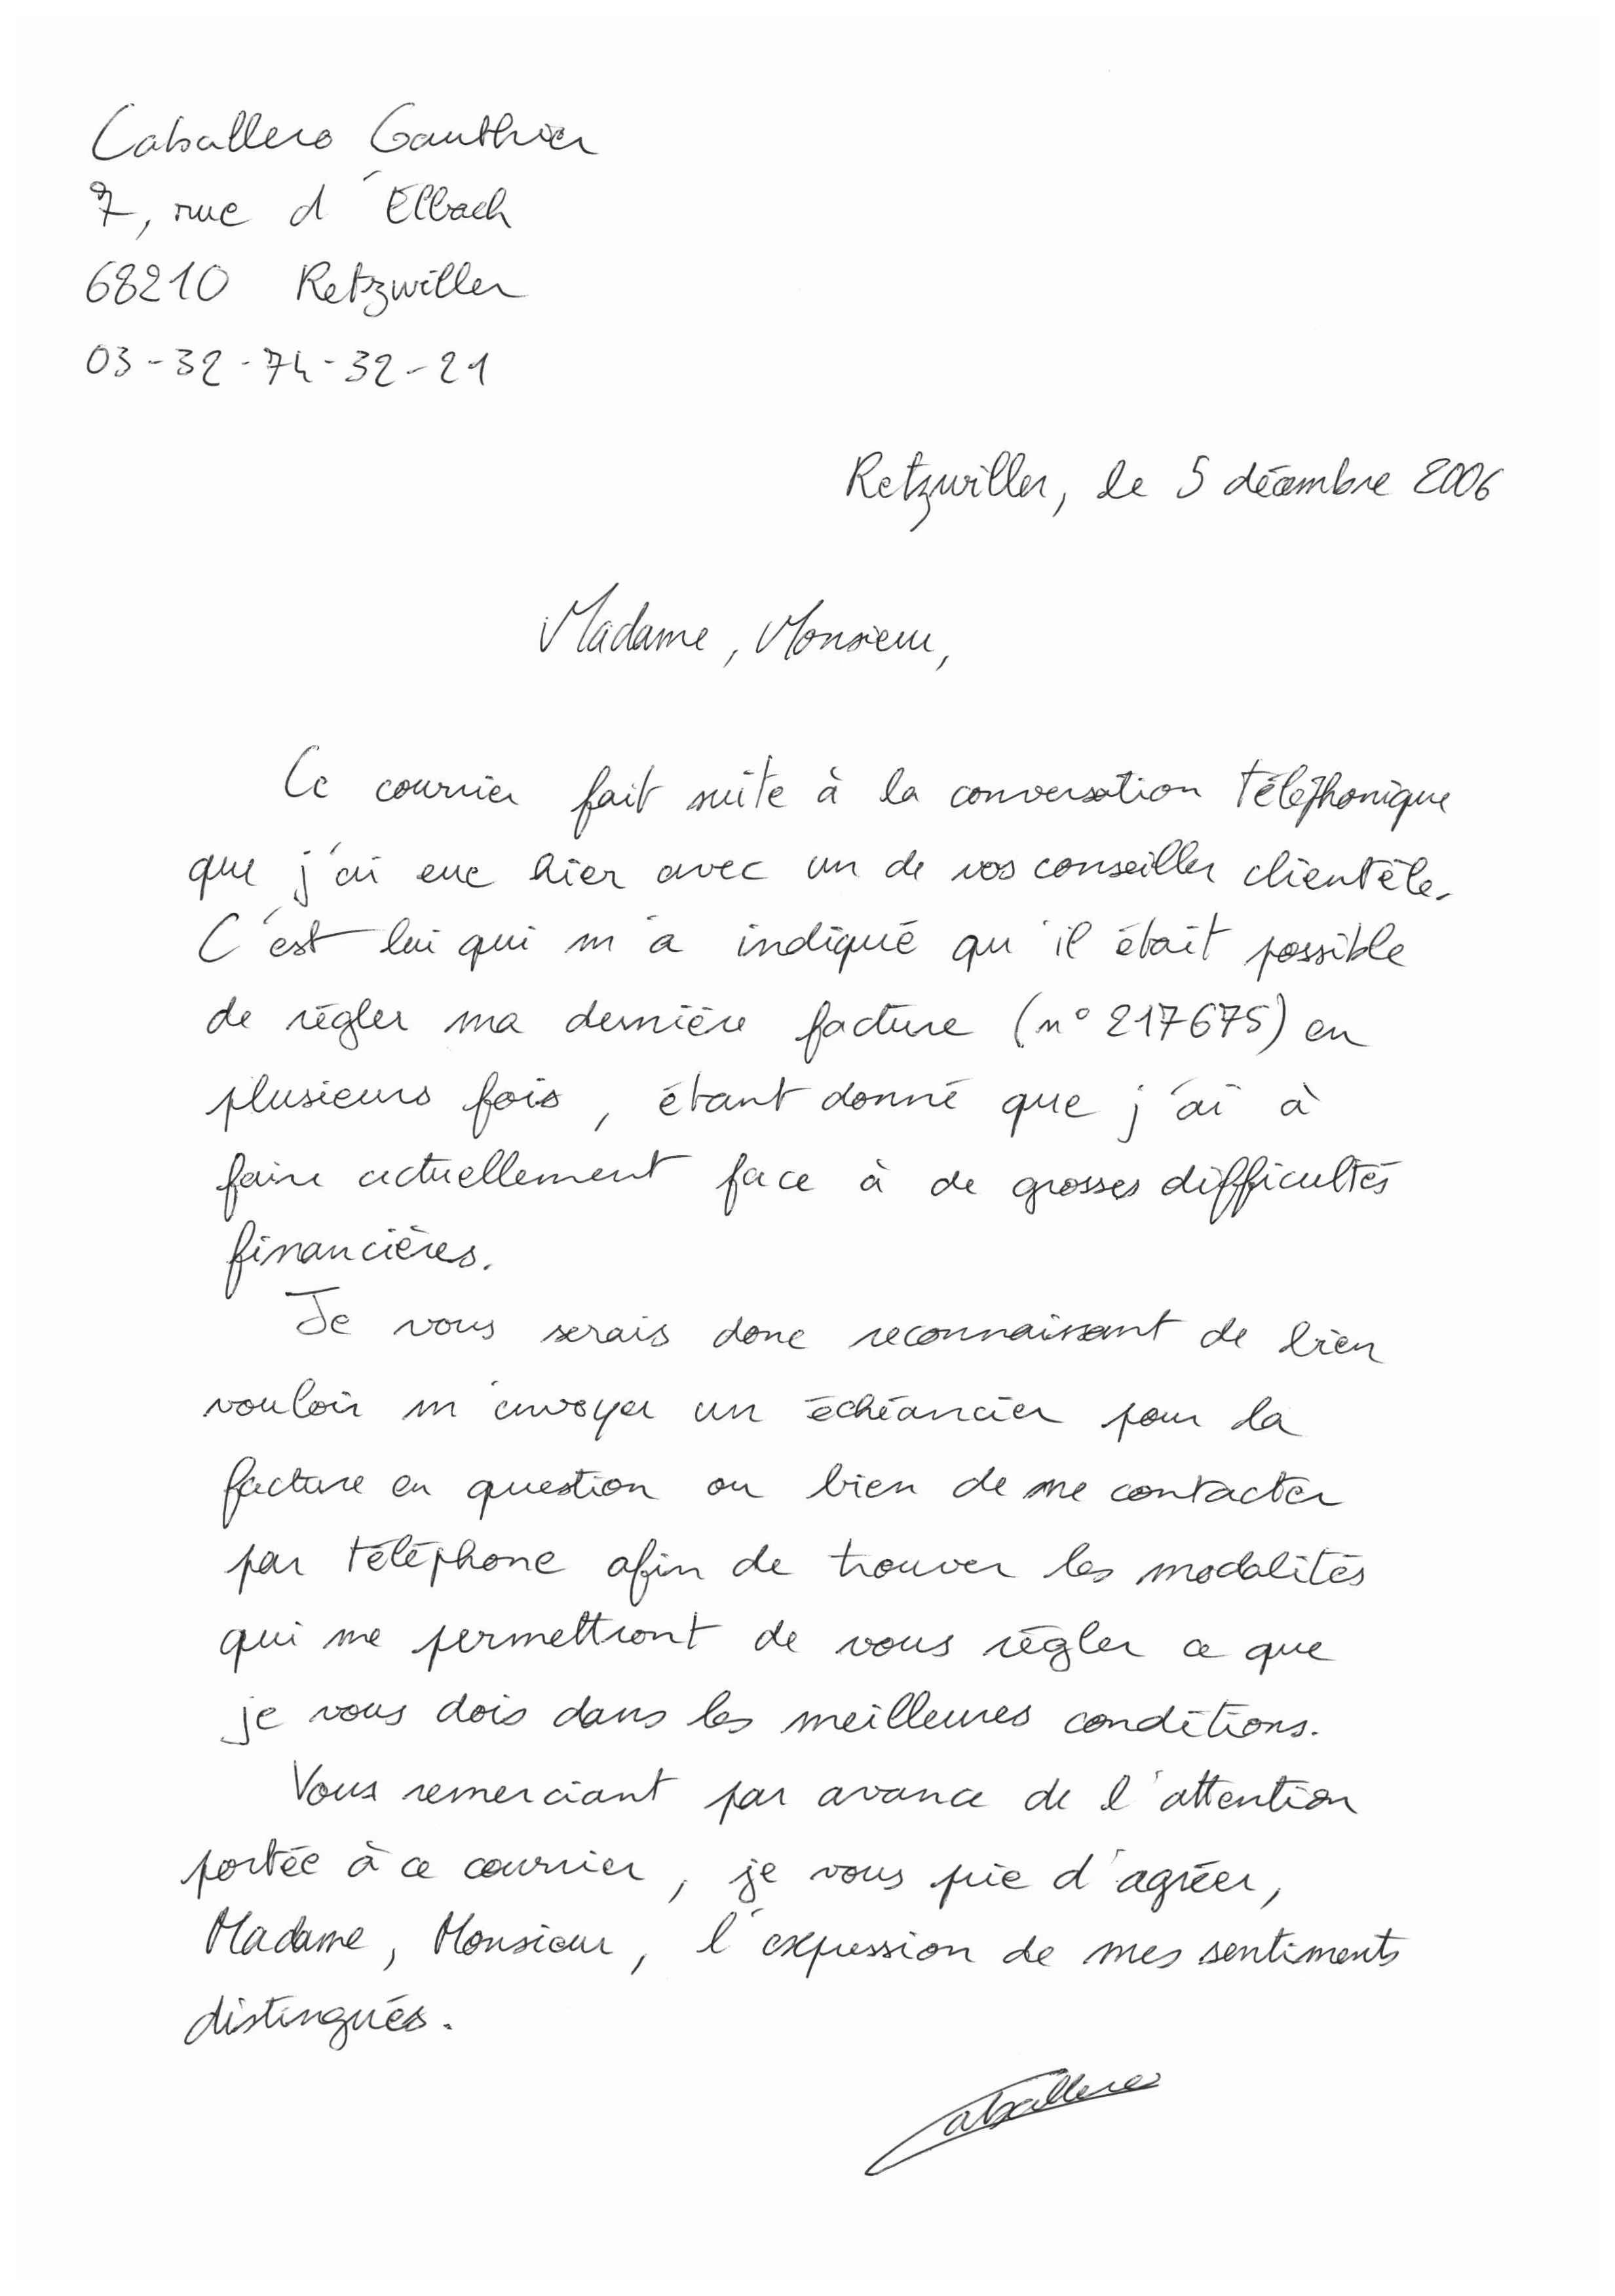 Caballero Gauthier
7, rue d'Elbach
68210 Retzwiller
03-32-74-32-21
Retzwiller, le 5 décembre 2006
Madame, Monsieur,
Ce courrier fait suite à la conversation téléphonique
que j'ai eue hier avec un de vos conseiller clientèle.
C'est lui qui m'a indiqué qu'il était possible
de régler ma dernière facture (n° 217675) en
plusieurs fois, étant donné que j'ai à
faire actuellement face à de grosses difficultés
financières.
Je vous serais donc reconnaissant de bien
vouloir m'envoyer un échéancier pour la
facture en question ou bien de me contacter
par téléphone afin de trouver les modalités
qui me permettront de vous régler ce que
je vous dois dans les meilleures conditions.
Vous remerciant par avance de l'attention
portée à ce courrier, je vous prie d'agréer,
Madame, Monsieur, l'expression de mes sentiments
distingués.
Caballero